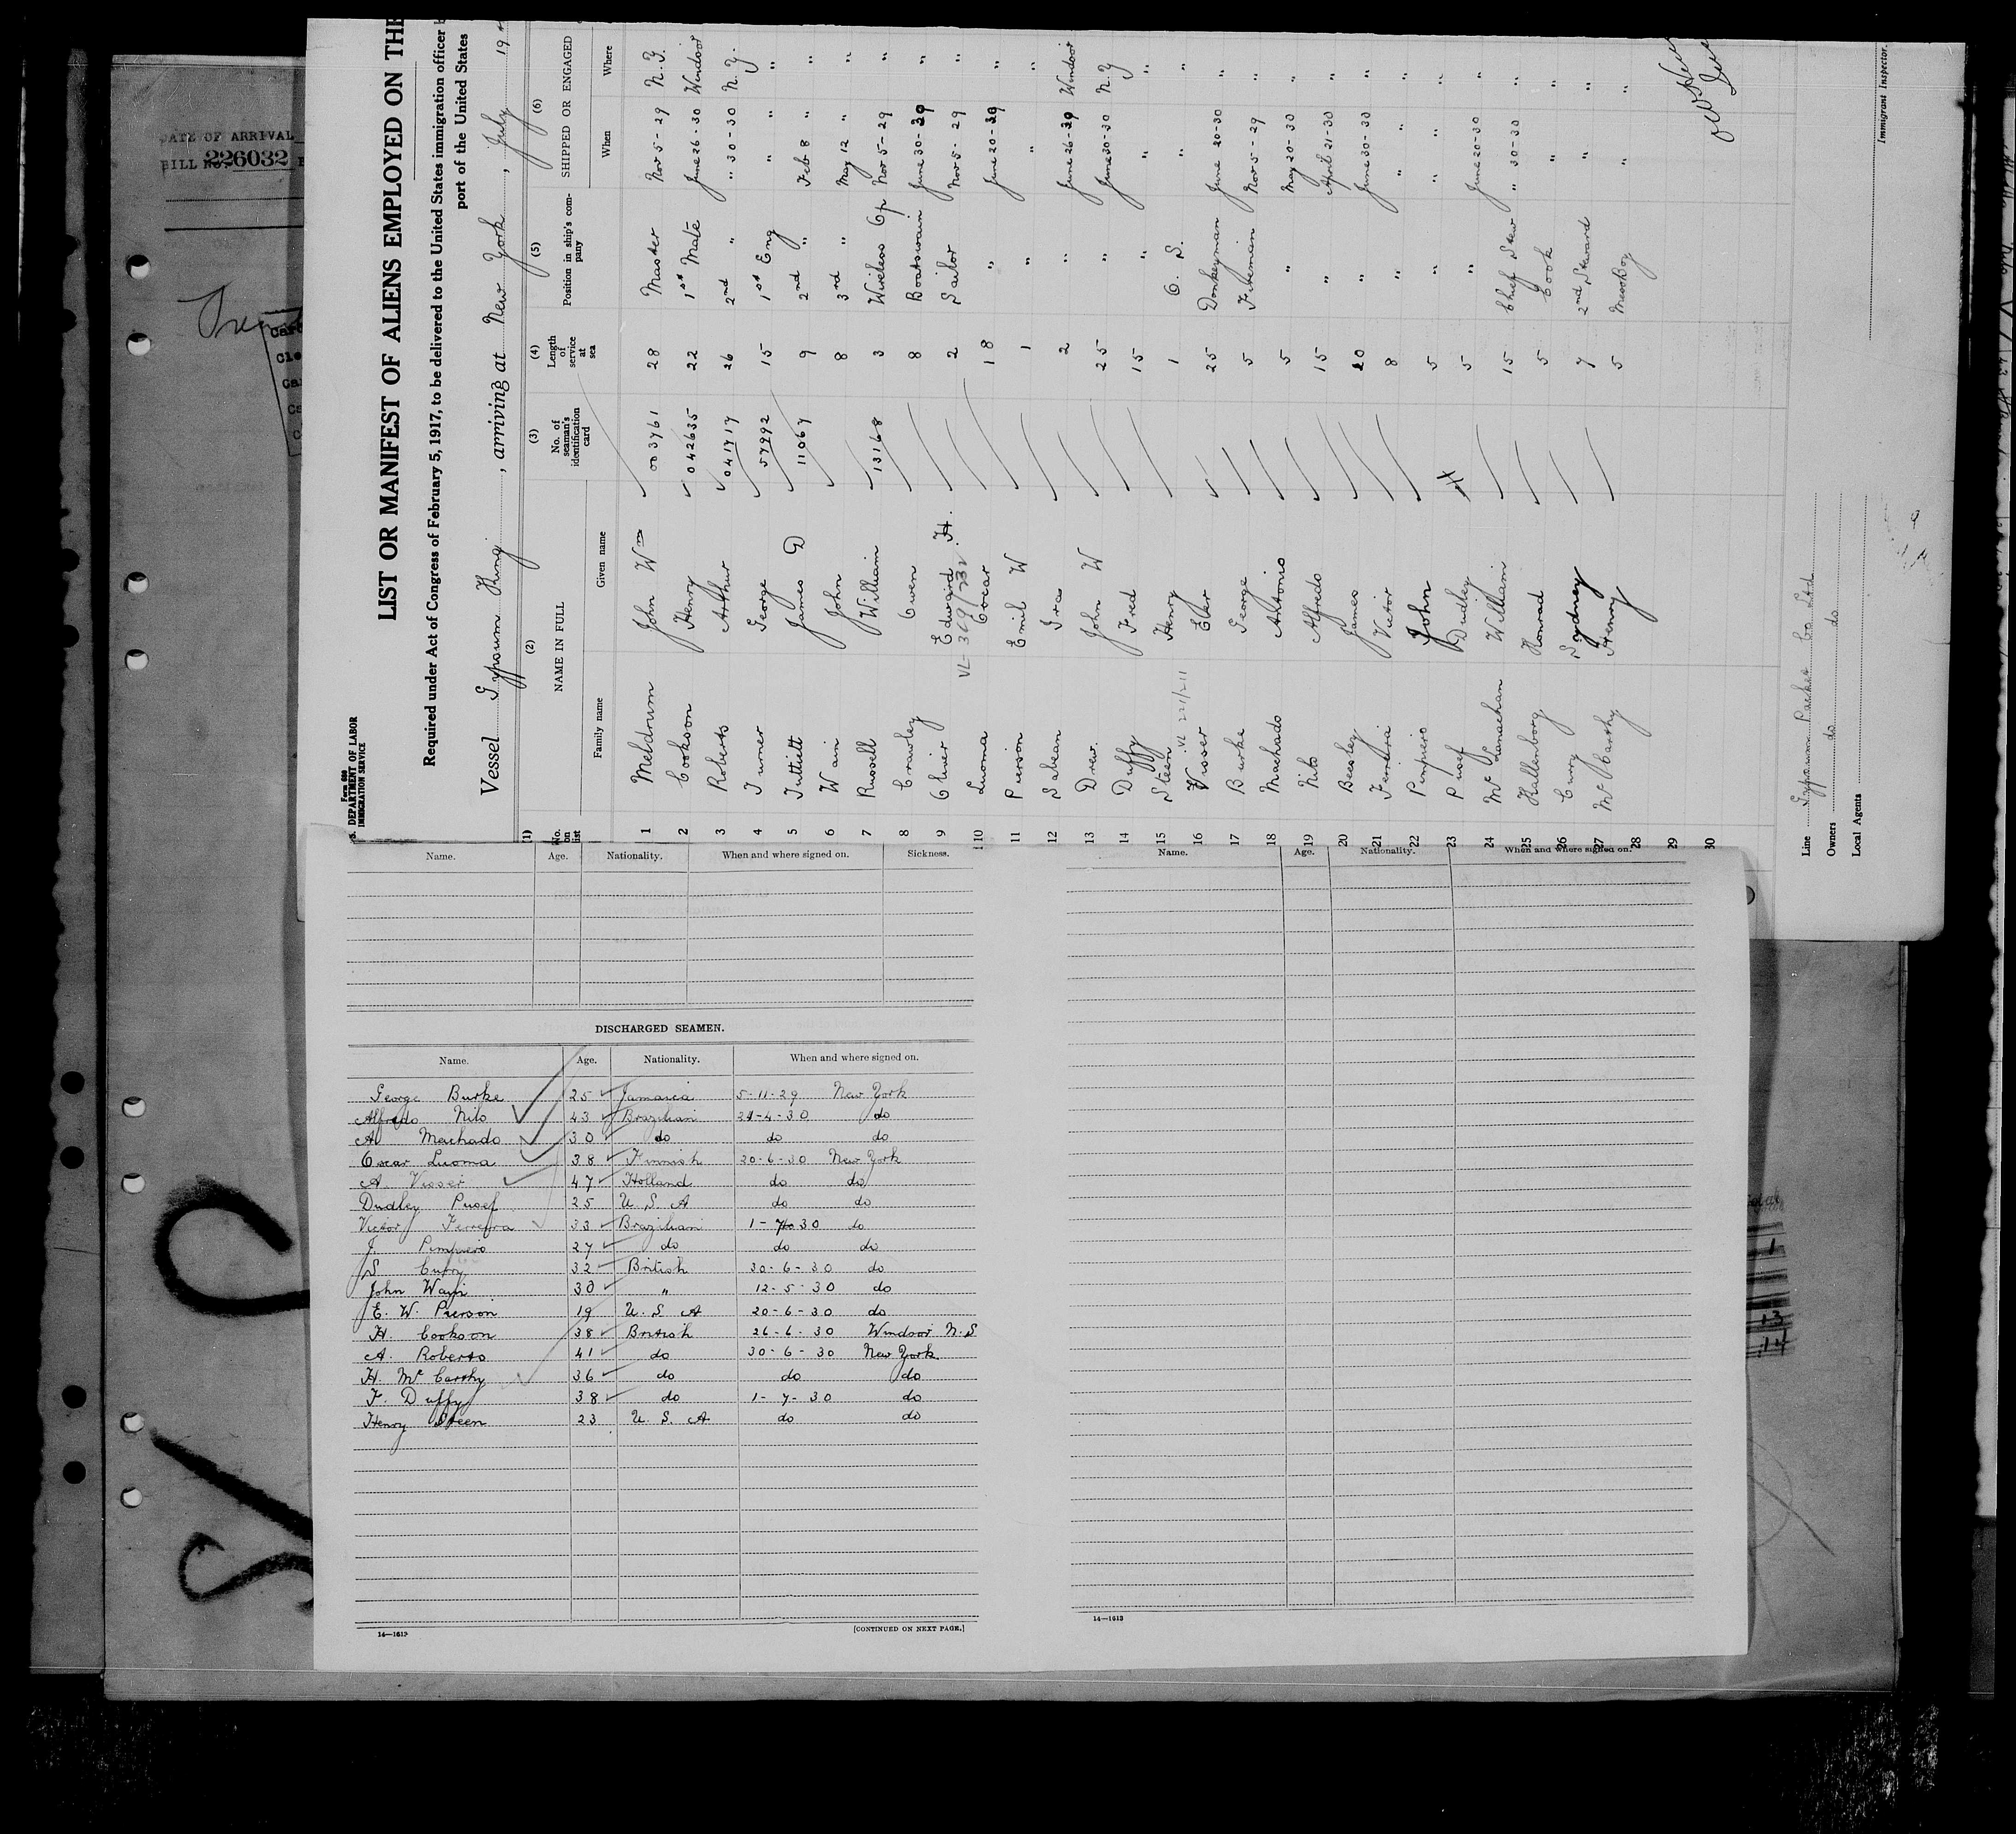 DATE OF ARRIVAL
BILL No. 226032
S. DEPARTMENT OF LABOR
IMMIGRATION SERVICE
Form 680
LIST OR MANIFEST OF ALIENS EMPLOYED ON THE
Required under Act of Congress of February 5, 1917, to be delivered to the United States immigration officer
port of the United States
Vessel Gypsum King, arriving at New York, July 19
(1) (2) (3) (4) (5) (6)
No. on list NAME IN FULL No. of seaman's identification card Length of service at sea Position in ship's company SHIPPED OR ENGAGED
Family name Given name When Where
1 Meldrum John Wm 003761 28 Master Nov 5-29 N.Y.
2 Cookson Henry 042635 22 1st Mate June 26-30 Windsor
3 Roberts Arthur 041717 26 2nd " " 30-30 N.Y.
4 Turner George 57992 15 1st Eng " "
5 James D 11067 9 2nd " Feb 8 "
6 Wain John 8 3rd " May 12 "
7 Russell William 13168 3 Wireless Op Nov 5-29 "
8 Crawley Owen 8 Boatswain June 30-29 "
9 Oliver Edward H. 2 Sailor Nov 5-29 "
VL-369/732
10 Luoma Oscar 18 " June 20-30 "
11 Pierson Emil W 1 " " "
12 Sabean Ira 2 " June 26-30 Windsor
13 Drew John W 25 " June 30-30 N.Y
14 Duffy Fred 15 " " "
15 Steen Henry 1 O. S. " "
VL 221/211
16 Visser 25 Donkeyman June 20-30 "
17 Burke George 5 Fireman Nov 5-29 "
18 Machado Antonio 5 " May 20-30 "
19 Nilo Alfredo 15 " April 21-30 "
20 Beesley James 20 " June 30-30 "
21 Ferreira Victor 8 " " "
22 Pimpiero John 5 " " "
23 Pusef Dudley 5 " June 20-30 "
24 McLanachan William 15 Chief Stew " 30-30 "
25 Hallenborg Konrad 5 Cook " "
26 Curry Sydney 7 2nd Steward " "
27 McCarthy Henry 5 MessBoy " "
28
29
30
Line Gypsum Packet Co Ltd
Owners do do
Local Agents
Immigrant Inspector.
Name. Age. Nationality. When and where signed on. Sickness.
Name. Age. Nationality. When and where signed on.
DISCHARGED SEAMEN.
Name. Age. Nationality. When and where signed on.
George Burke 25 Jamaica 5-11-29 New York
Alfredo Nilo 43 Brazilian 21-4-30 do
A Machado 30 do do do
Oscar Luoma 38 Finnish 20-6-30 New York
A. Visser 47 Holland do do
Dudley Pusef 25 U. S. A do do
Victor Ferreira 33 Brazilian 1-7-30 do
J. Pimpiero 27 do do do
S Curry 32 British 30-6-30 do
John Wain 30 " 12-5-30 do
E. W. Pierson 19 U. S. A 20-6-30 do
H. Cookson 38 British 26-6-30 Windsor N.S
A. Roberts 41 do 30-6-30 New York
H. McCarthy 36 do do do
F. Duffy 38 do 1-7-30 do
Henry Steen 23 U. S. A do do
14—1613
[CONTINUED ON NEXT PAGE.]
14—1613